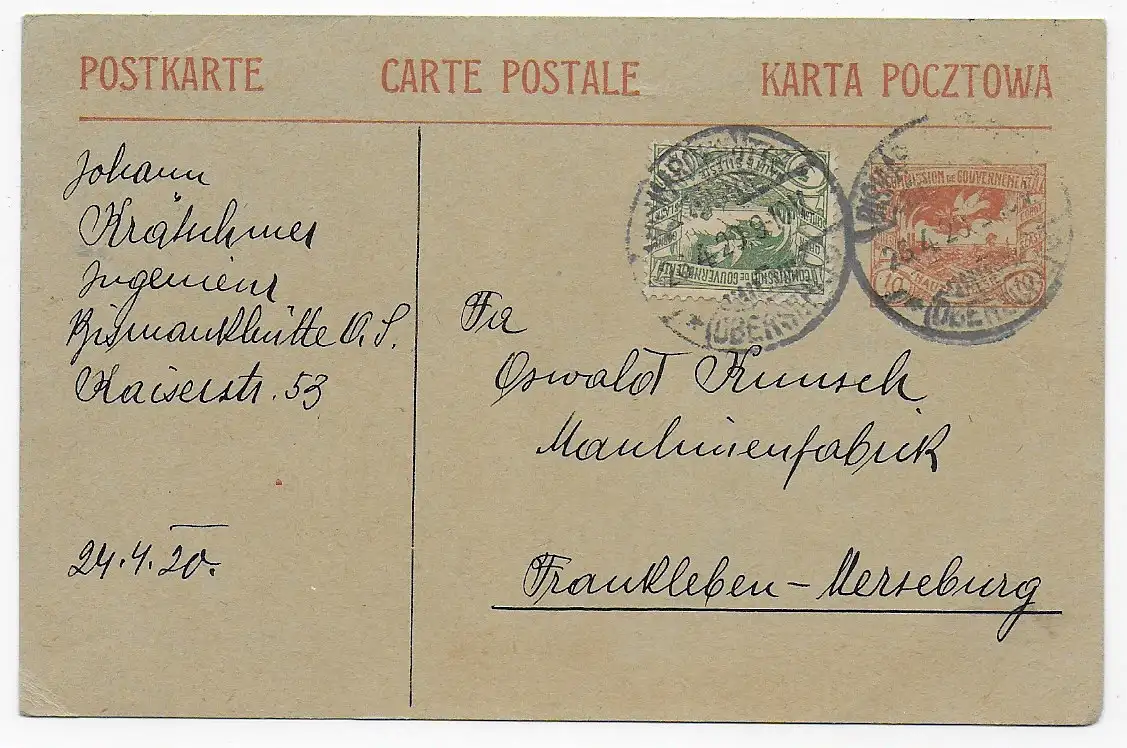 POSTKARTE CARTE POSTALE KARTA POCZTOWA
Johann
Krätschmer
Ingenieur
Bismarckhütte O.S.
Kaiserstr. 53
24.4.20.
COMMISSION DE GOUVERNEMENT
(OBERSCHL
COMMISSION DE GOUVERNEMENT
10
(OBERSCHL
Fa
Oswald Kunsch
Maschinenfabrik
Frankleben-Merseburg